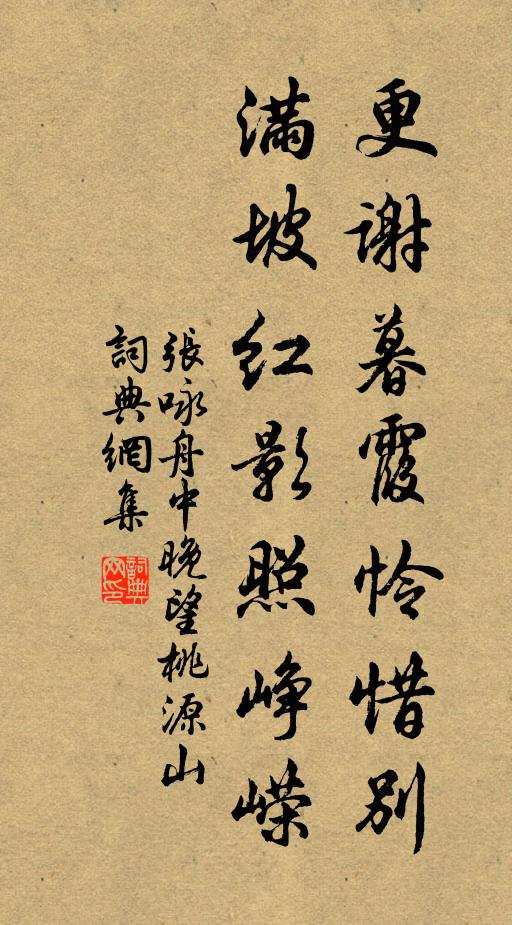 更谢暮霞怜惜别
满坡红影照峥嵘
張咏舟中晚望桃源山
詞典網集
詞典网印